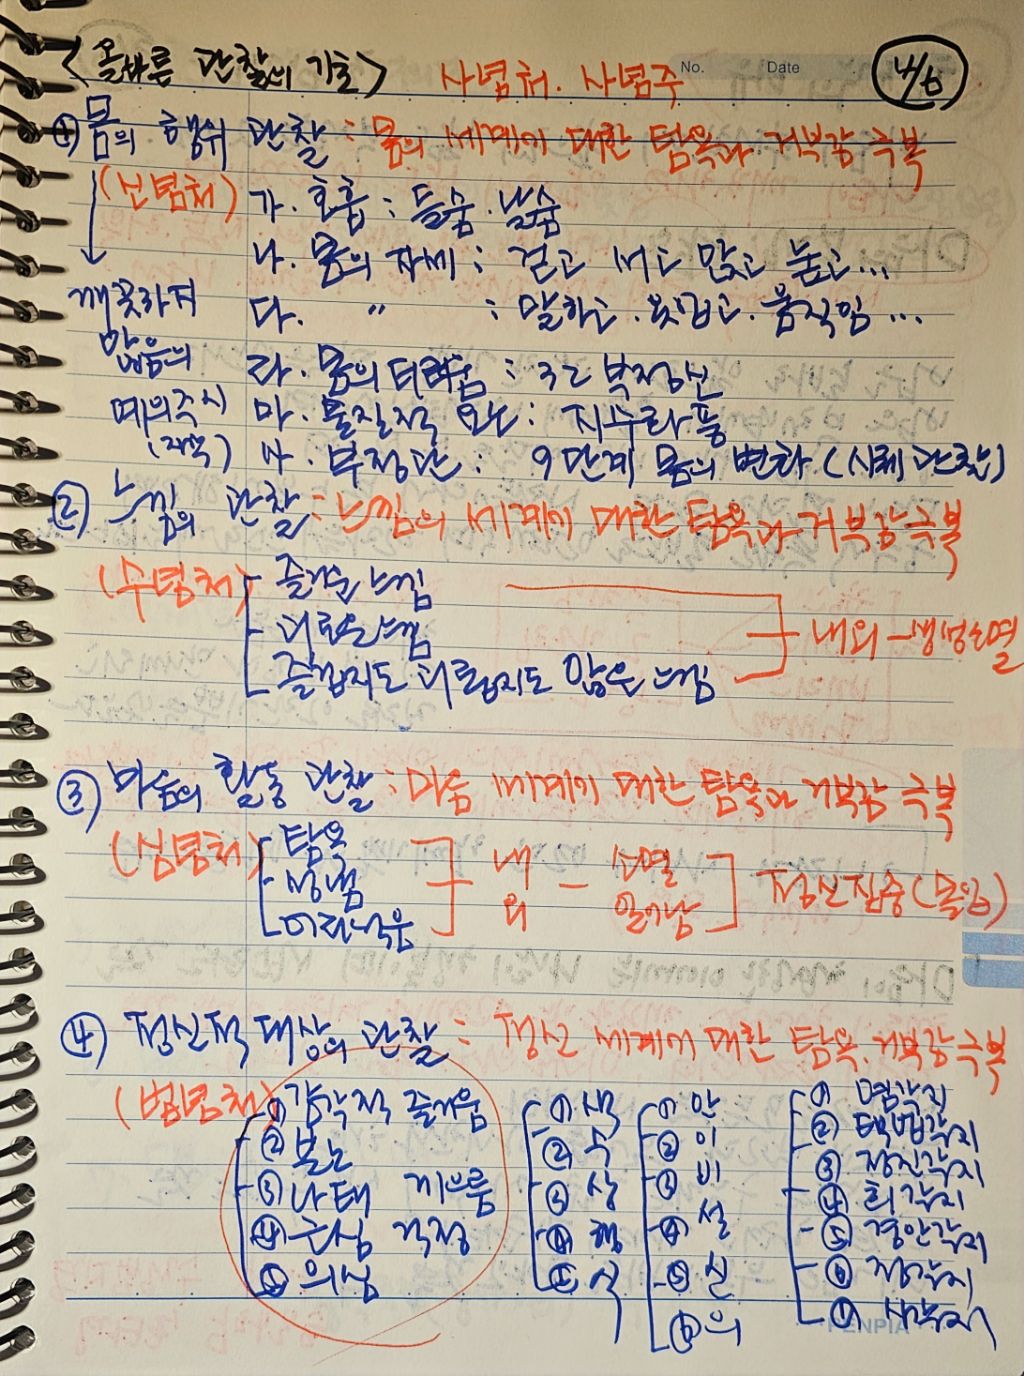 <올바른 관찰의 기술> 사념처. 사념주 No. Date 4/6
① 몸의 행위 관찰 : 몸의 세계에 대한 탐욕과 거부감 극복
(신념처) 가. 호흡 : 들숨. 날숨
나. 몸의 자세 : 걷고 서고 앉고 눕고...
깨끗하지 다. 〃 : 말하고. 못입고. 움직임...
않음의 라. 몸의 더러움 : 32 부정신
예의주시 마. 물질적 요소 : 지수화풍
바. 부정관 : 9단계 몸의 변화 (시체 관찰)
② 느낌의 관찰 : 느낌의 세계에 대한 탐욕과 거부감 극복
(수념처) 즐거운 느낌
괴로운 느낌 내외 - 생성소멸
즐겁지도 괴롭지도 않은 느낌
③ 마음의 활동 관찰 : 마음 세계에 대한 탐욕과 거부감 극복
(심념처) 탐욕
성냄 내 외 - 소멸 일어남 정신집중 (몰입)
어리석음
④ 정신적 대상의 관찰 : 정신 세계에 대한 탐욕. 거부감 극복
(법념처) ① 감각적 즐거움 ① 색 ① 안 ① 염각지
② 분노 ② 수 ② 이 ② 택법각지
③ 나태 게으름 ③ 상 ③ 비 ③ 정진각지
④ 근심 걱정 ④ 행 ④ 설 ④ 희각지
⑤ 의심 ⑤ 식 ⑤ 신 ⑤ 경안각지
⑥ 의 ⑥ 정각지
⑦ 사각지
PENPIA